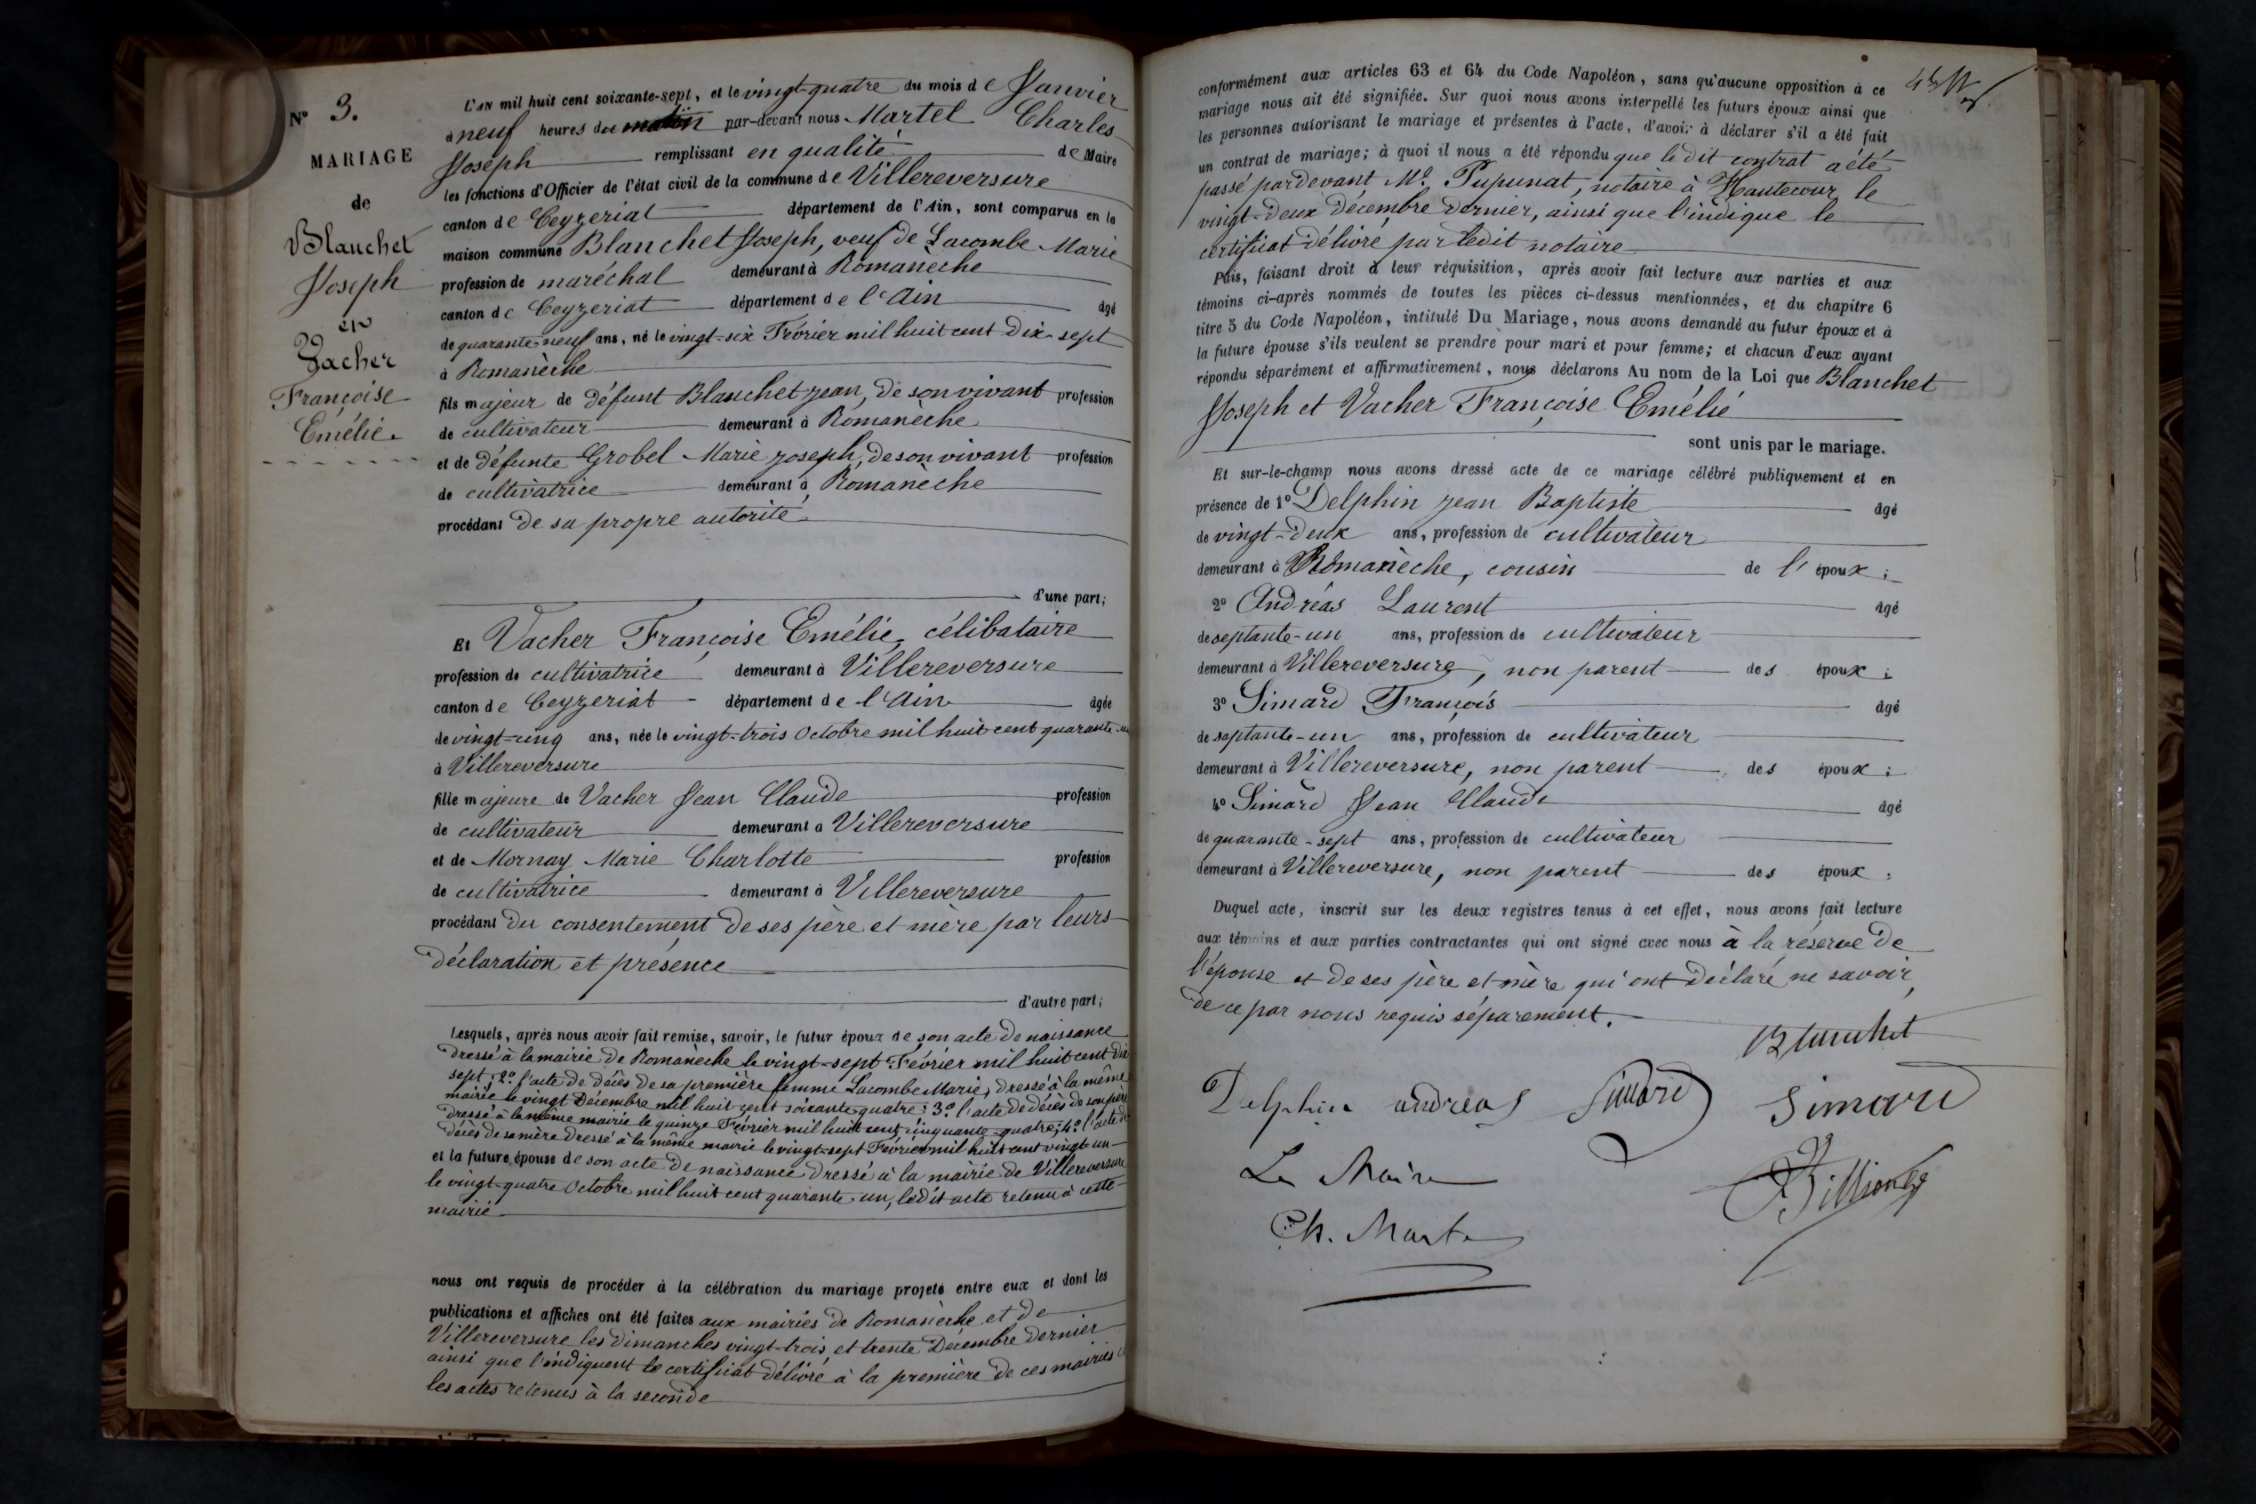 N° 3.
MARIAGE
de
Blanchet
Joseph
et
Vacher
Françoise
Emélie.
L'AN mil huit cent soixante-sept, et le vingt-quatre du mois de Janvier
à neuf heures du matin par-devant nous Martel Charles
Joseph remplissant en qualité de Maire
les fonctions d'Officier de l'état civil de la commune de Villereversure
canton de Ceyzeriat département de l'Ain, sont comparus en la
maison commune Blanchet Joseph, veuf de Lacombe Marie
profession de maréchal demeurant à Romanèche
canton de Ceyzeriat département de l'Ain âgé
de quarante-neuf ans, né le vingt-six Février mil huit cent dix-sept
à Romanèche
fils majeur de défunt Blanchet Jean, de son vivant profession
de cultivateur demeurant à Romanèche
et de défunte Grobel Marie Joseph, de son vivant profession
de cultivatrice demeurant à Romanèche
procédant de sa propre autorité
d'une part;
Et Vacher Françoise Emélie, célibataire
profession de cultivatrice demeurant à Villereversure
canton de Ceyzeriat département de l'Ain âgée
de vingt-cinq ans, née le vingt-trois Octobre mil huit cent quarante-un
à Villereversure
fille majeure de Vacher Jean Claude profession
de cultivateur demeurant à Villereversure
et de Mornay Marie Charlotte profession
de cultivatrice demeurant à Villereversure
procédant du consentement de ses père et mère par leurs
déclaration et présence
d'autre part;
Lesquels, après nous avoir fait remise, savoir, le futur époux de son acte de naissance
dressé à la mairie de Romanèche le vingt-sept Février mil huit cent dix
sept; 2° l'acte de décès de sa première femme Lacombe Marie, dressé à la même
mairie le vingt Décembre mil huit cent soixante-quatre; 3° l'acte de décès de son père
dressé à la même mairie le quinze Février mil huit cent cinquante-quatre; 4° l'acte de
décès de sa mère dressé à la même mairie le vingt-sept Février mil huit cent vingt-un
et la future épouse de son acte de naissance dressé à la mairie de Villereversure
le vingt-quatre Octobre mil huit cent quarante-un, ledit acte retenu à cette
mairie
nous ont requis de procéder à la célébration du mariage projeté entre eux et dont les
publications et affiches ont été faites aux mairies de Romanèche et de
Villereversure les dimanches vingt-trois et trente Décembre dernier
ainsi que l'indiquent le certificat délivré à la première de ces mairies
les actes retenus à la seconde
conformément aux articles 63 et 64 du Code Napoléon, sans qu'aucune opposition à ce
mariage nous ait été signifiée. Sur quoi nous avons interpellé les futurs époux ainsi que
les personnes autorisant le mariage et présentes à l'acte, d'avoir à déclarer s'il a été fait
un contrat de mariage; à quoi il nous a été répondu que le dit contrat a été
passé pardevant Me Pupunat, notaire à Hautecour le
vingt-deux décembre dernier, ainsi que l'indique le
certificat délivré par ledit notaire
Puis, faisant droit à leur réquisition, après avoir fait lecture aux parties et aux
témoins ci-après nommés de toutes les pièces ci-dessus mentionnées, et du chapitre 6
titre 5 du Code Napoléon, intitulé Du Mariage, nous avons demandé au futur époux et à
la future épouse s'ils veulent se prendre pour mari et pour femme; et chacun d'eux ayant
répondu séparément et affirmativement, nous déclarons Au nom de la Loi que Blanchet
Joseph et Vacher Françoise Emélie
sont unis par le mariage.
Et sur-le-champ nous avons dressé acte de ce mariage célébré publiquement et en
présence de 1° Delphin Jean Baptiste âgé
de vingt-deux ans, profession de cultivateur
demeurant à Romanèche, cousin de l' époux;
2° Andréas Laurent âgé
de septante-un ans, profession de cultivateur
demeurant à Villereversure, non parent des époux;
3° Simard François âgé
de septante-un ans, profession de cultivateur
demeurant à Villereversure, non parent des époux;
4° Simard Jean Claude âgé
de quarante-sept ans, profession de cultivateur
demeurant à Villereversure, non parent des époux;
Duquel acte, inscrit sur les deux registres tenus à cet effet, nous avons fait lecture
aux témoins et aux parties contractantes qui ont signé avec nous à la réserve de
l'épouse et de ses père et mère qui ont déclaré ne savoir,
de ce par nous requis séparément.
Blanchet
Delphin andreas Simard Simard
Le Maire
Ch. Martel